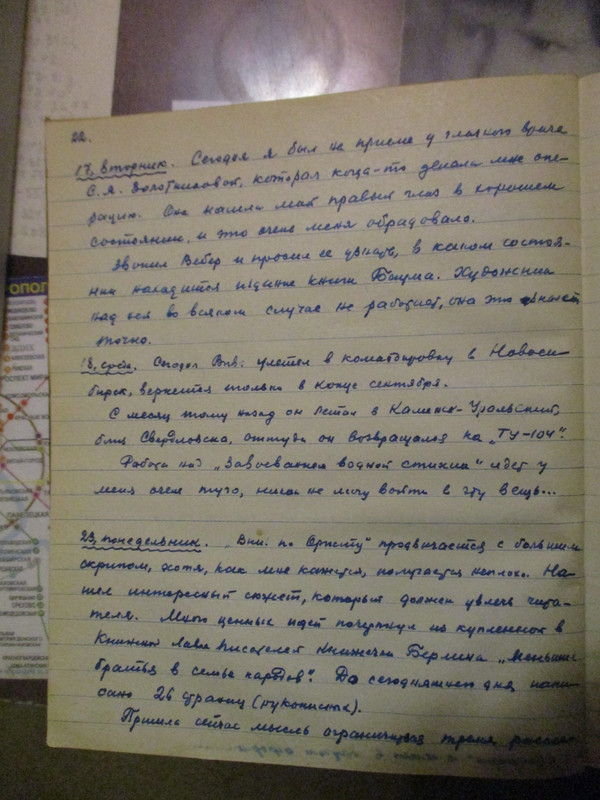 22.
17, вторник. Сегодня я был на приеме у глазного врача
С. Я. Золотниковой, которая когда-то делала мне опе-
рацию. Она нашла мой правый глаз в хорошем
состоянии, и это очень меня обрадовало.
Звонил Вебер и просил ее узнать, в каком состоя-
нии находится издание книги Баума. Художник
над ней во всяком случае не работает, она это знает
точно.
18, среда. Сегодня улетел в командировку в Новоси-
бирск, вернется только в конце сентября.
С месяц тому назад он летал в Каменск-Уральский,
близ Свердловска, оттуда он возвращался на „ТУ-104".
Работа над „Завоеванием водной стихии" идет у
меня очень туго, никак не могу войти в эту вещь...
23, понедельник. по продвигается с большим
скрипом, хотя, как мне кажется, получается неплохо. На-
шел интересный сюжет, который должен увлечь чита-
теля. Много ценных идей почерпнул из купленной в
Книжной лавке писателей книжечки Берлина „Меньшие
братья в семье народов". До сегодняшнего дня напи-
сано 26 страниц (рукописных).
Пришла сейчас мысль ограничиться тремя
ОПОЛ